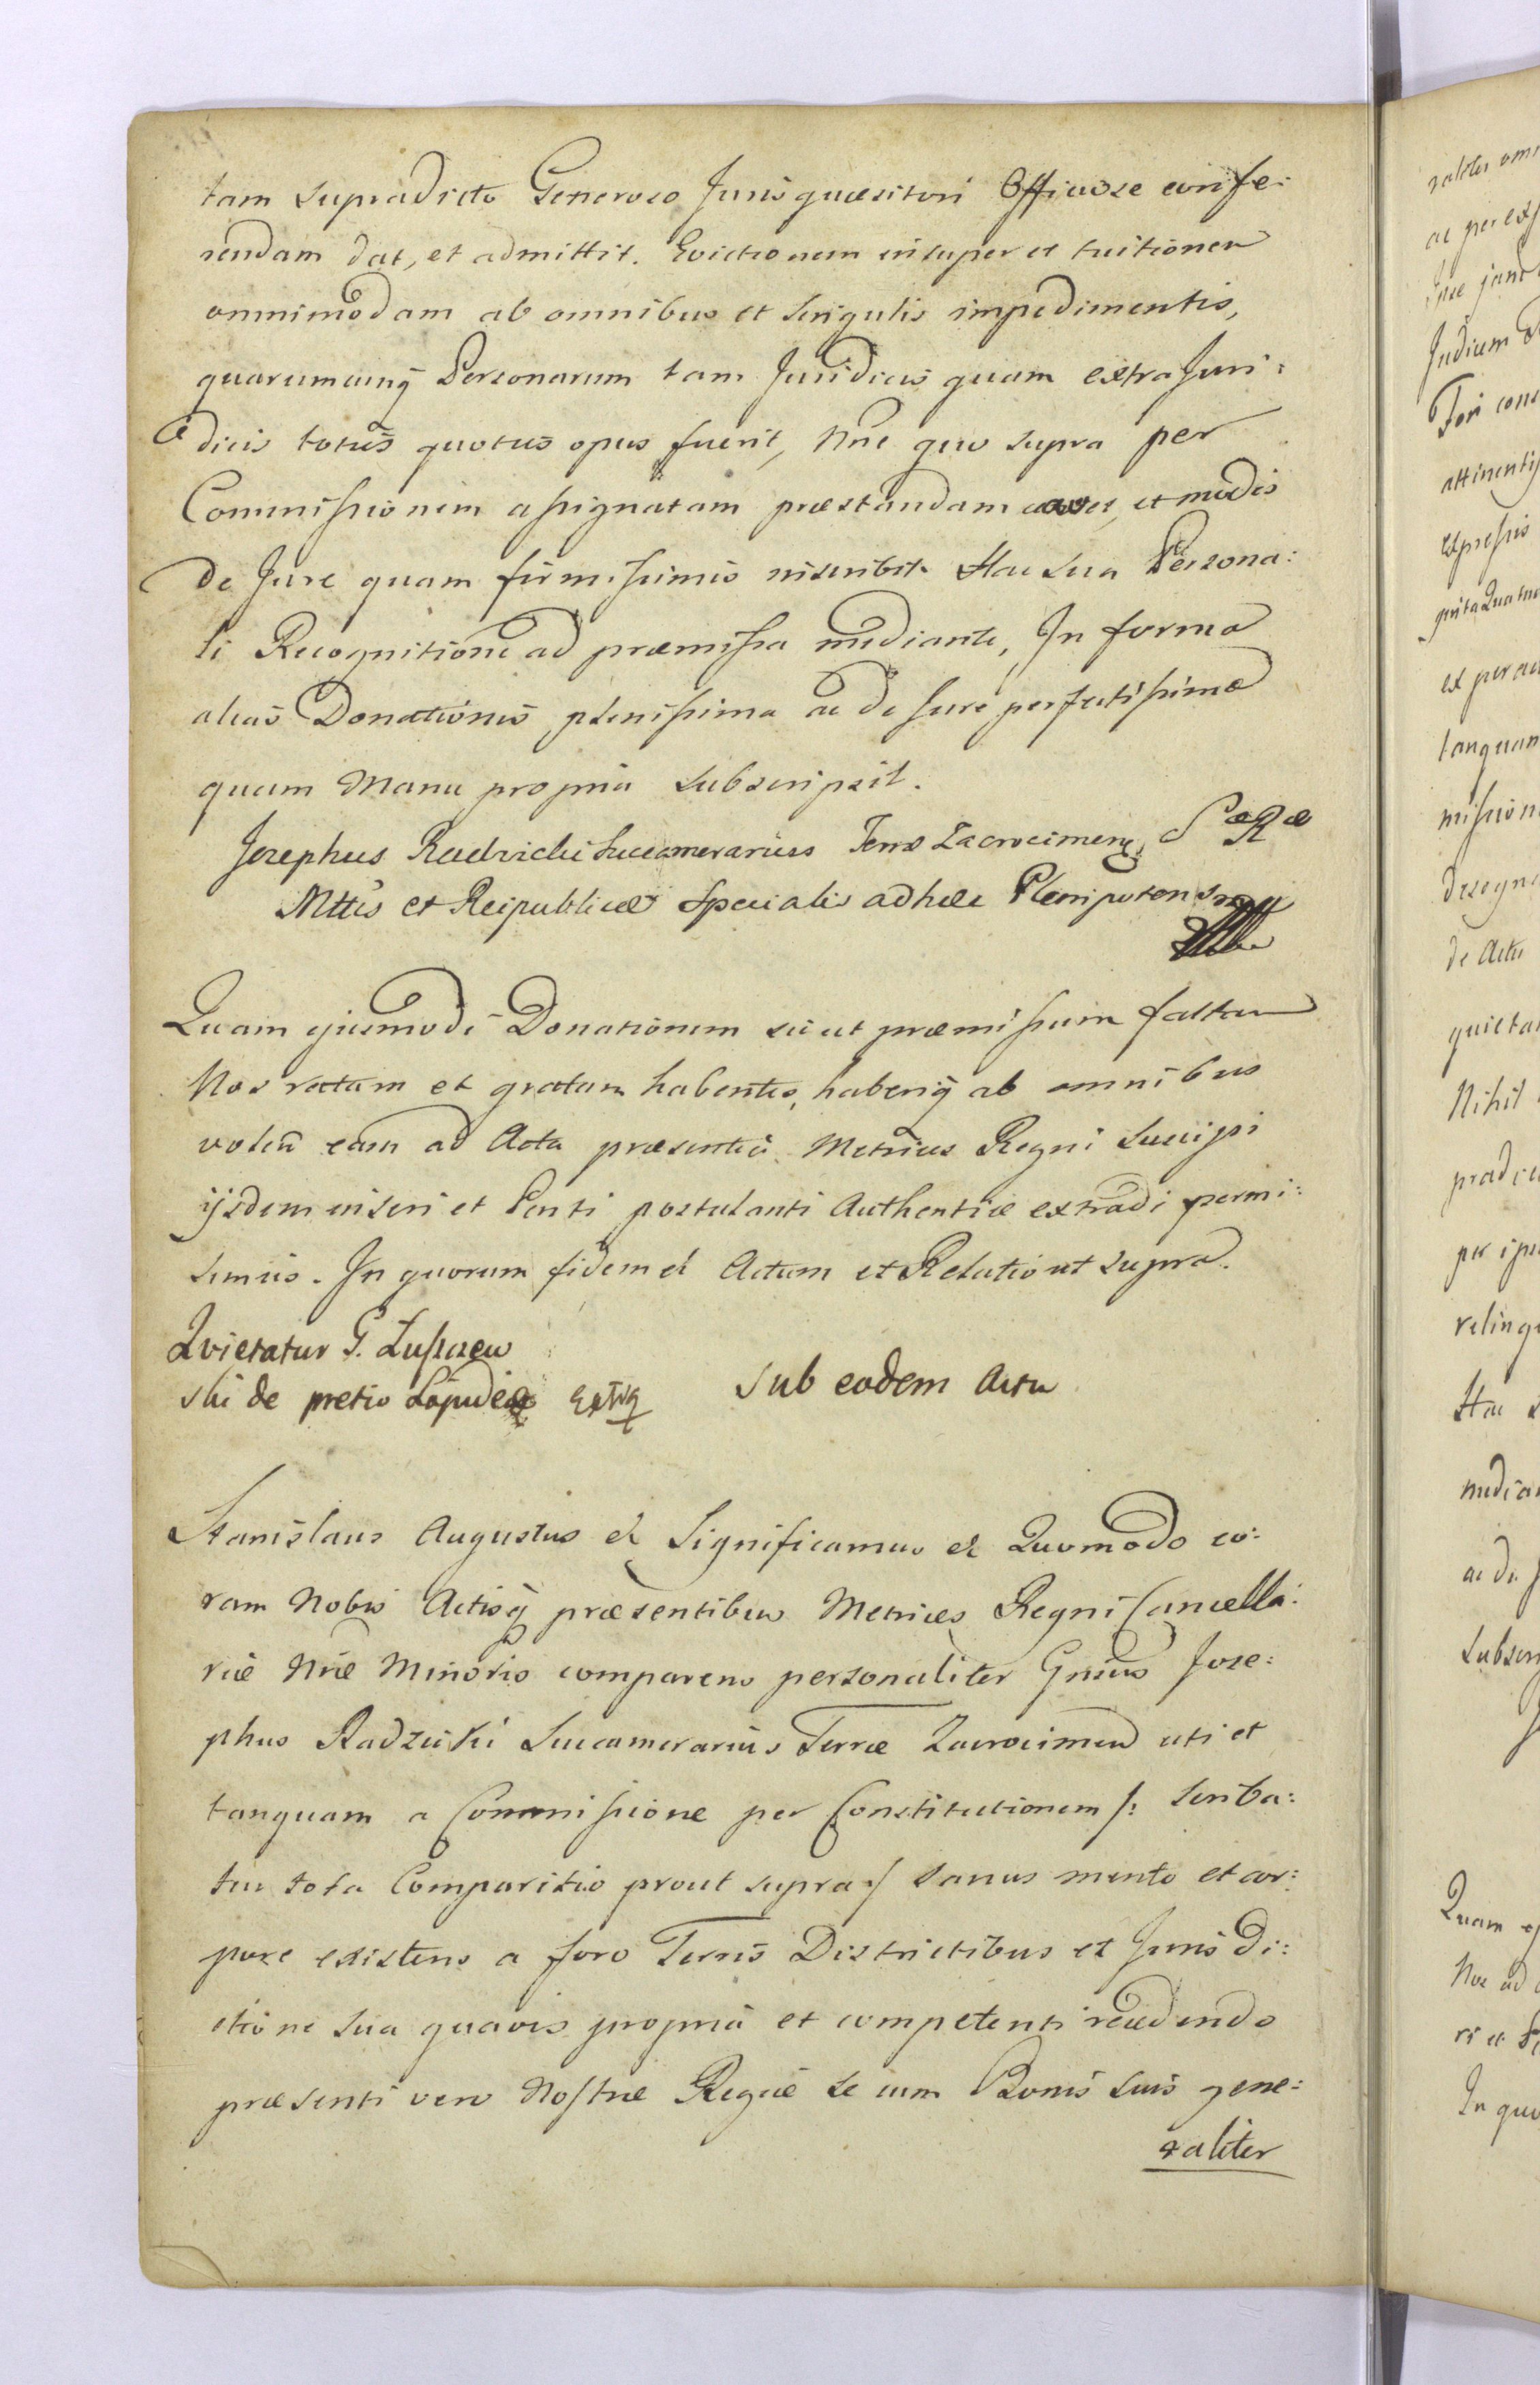 tam supradicto Generoso Jurisquæsitori Officiose confe:
rendam dat, et admittit. Evictionem insuper et tuitionem
omnimodam ab omnibus et singulis impedimentis,
quarumcunq̃ Personarum tam Juridicis quam extra Juri:
dicis toties quoties opus fuerit, Nñe quo supra per
Commissionem assignatam præstandam cavet, et modis
de Jure quam firmissimis inscribit. Hac sua Persona:
li Recognitione ad præmissa mediante, In forma
alias Donationis plenissima ac de Jure perfectissima
quam Manu propria subscripsit.
Josephus Radzicki Succamerarius Terræ Zacrocimenẽ, S æ R æ
Mttis et Reipublicæ Specialis ad hæc Plenipotens mp
Quam ejusmodi Donationem sicut præmissum factam
Nos ratam et gratam habentes, haberiq̃ ab omnibus
volen̄ eam ad Acta præsentia Metrices Regni suscipi
ijsdem inseri et Penti postulanti Authentice extradi permi:
simus. In quorum fidem et Actum et Relatio ut supra.
Qvietatur G.
ski de pretio
Sub eodem Actu
Stanislaus Augustus et Significamus et Quomodo co:
ram Nobis Actisq̃ præsentibus Metrices Regni Cancella:
riæ Nr̃æ Minoris comparens personaliter Gnsus Jose:
phus Radzicki Succamerarius Terræ Zacrocimen̄ uti et
tanquam a Commissione per Constitutionem /: scriba:
tur tota Comparitio prout supra :/ sanus mente et cor:
pore existens a foro Terris Districtibus et Juris di:
ctione sua quavis propria et competenti recedendo
præsenti vero Nostræ Regiæ se cum Bonis suis gene:
raliter